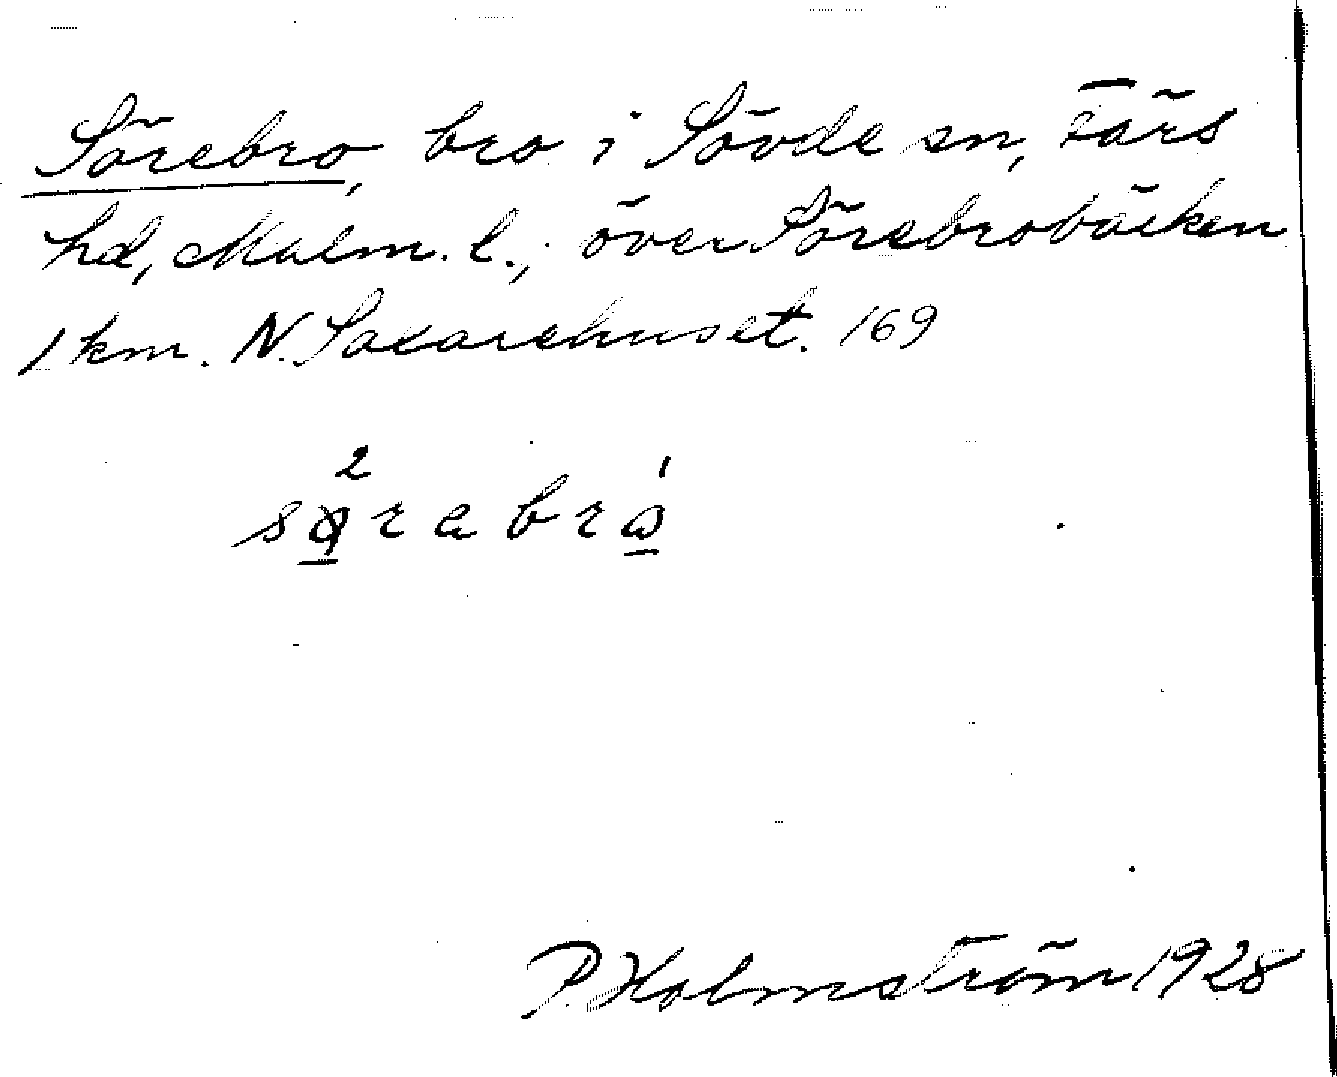 Sörebro, bro i Sövde sn, Färs
hd, Malm. l.; över Sörebrobäcken
1 km. N. Saxarehuset. 169
2 1
sørabro
P. Holmström 1928